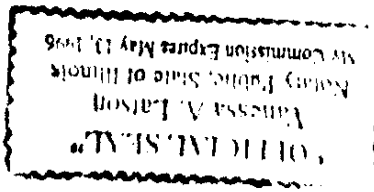 "OFFICIAL SEAL"
Vanessa A. Larson
Notary Public, State of Illinois
My Commission Expires May 13, 1996